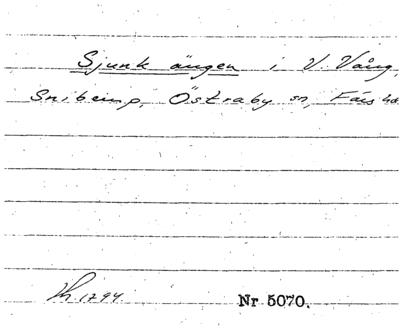 Sjunk ängen i V. Vång,
Snibemp, Östraby sn, Färs hd
Kh. 1794 Nr 5070.